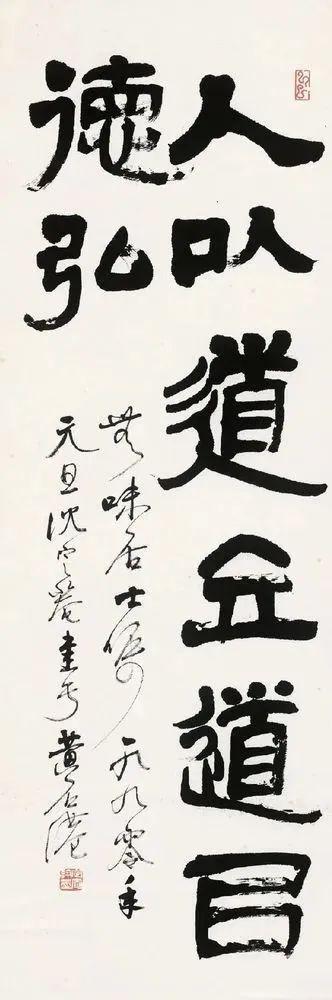 人以道立道以
德弘
無味居士 一九九零年
元旦沈定庵書于黃石港